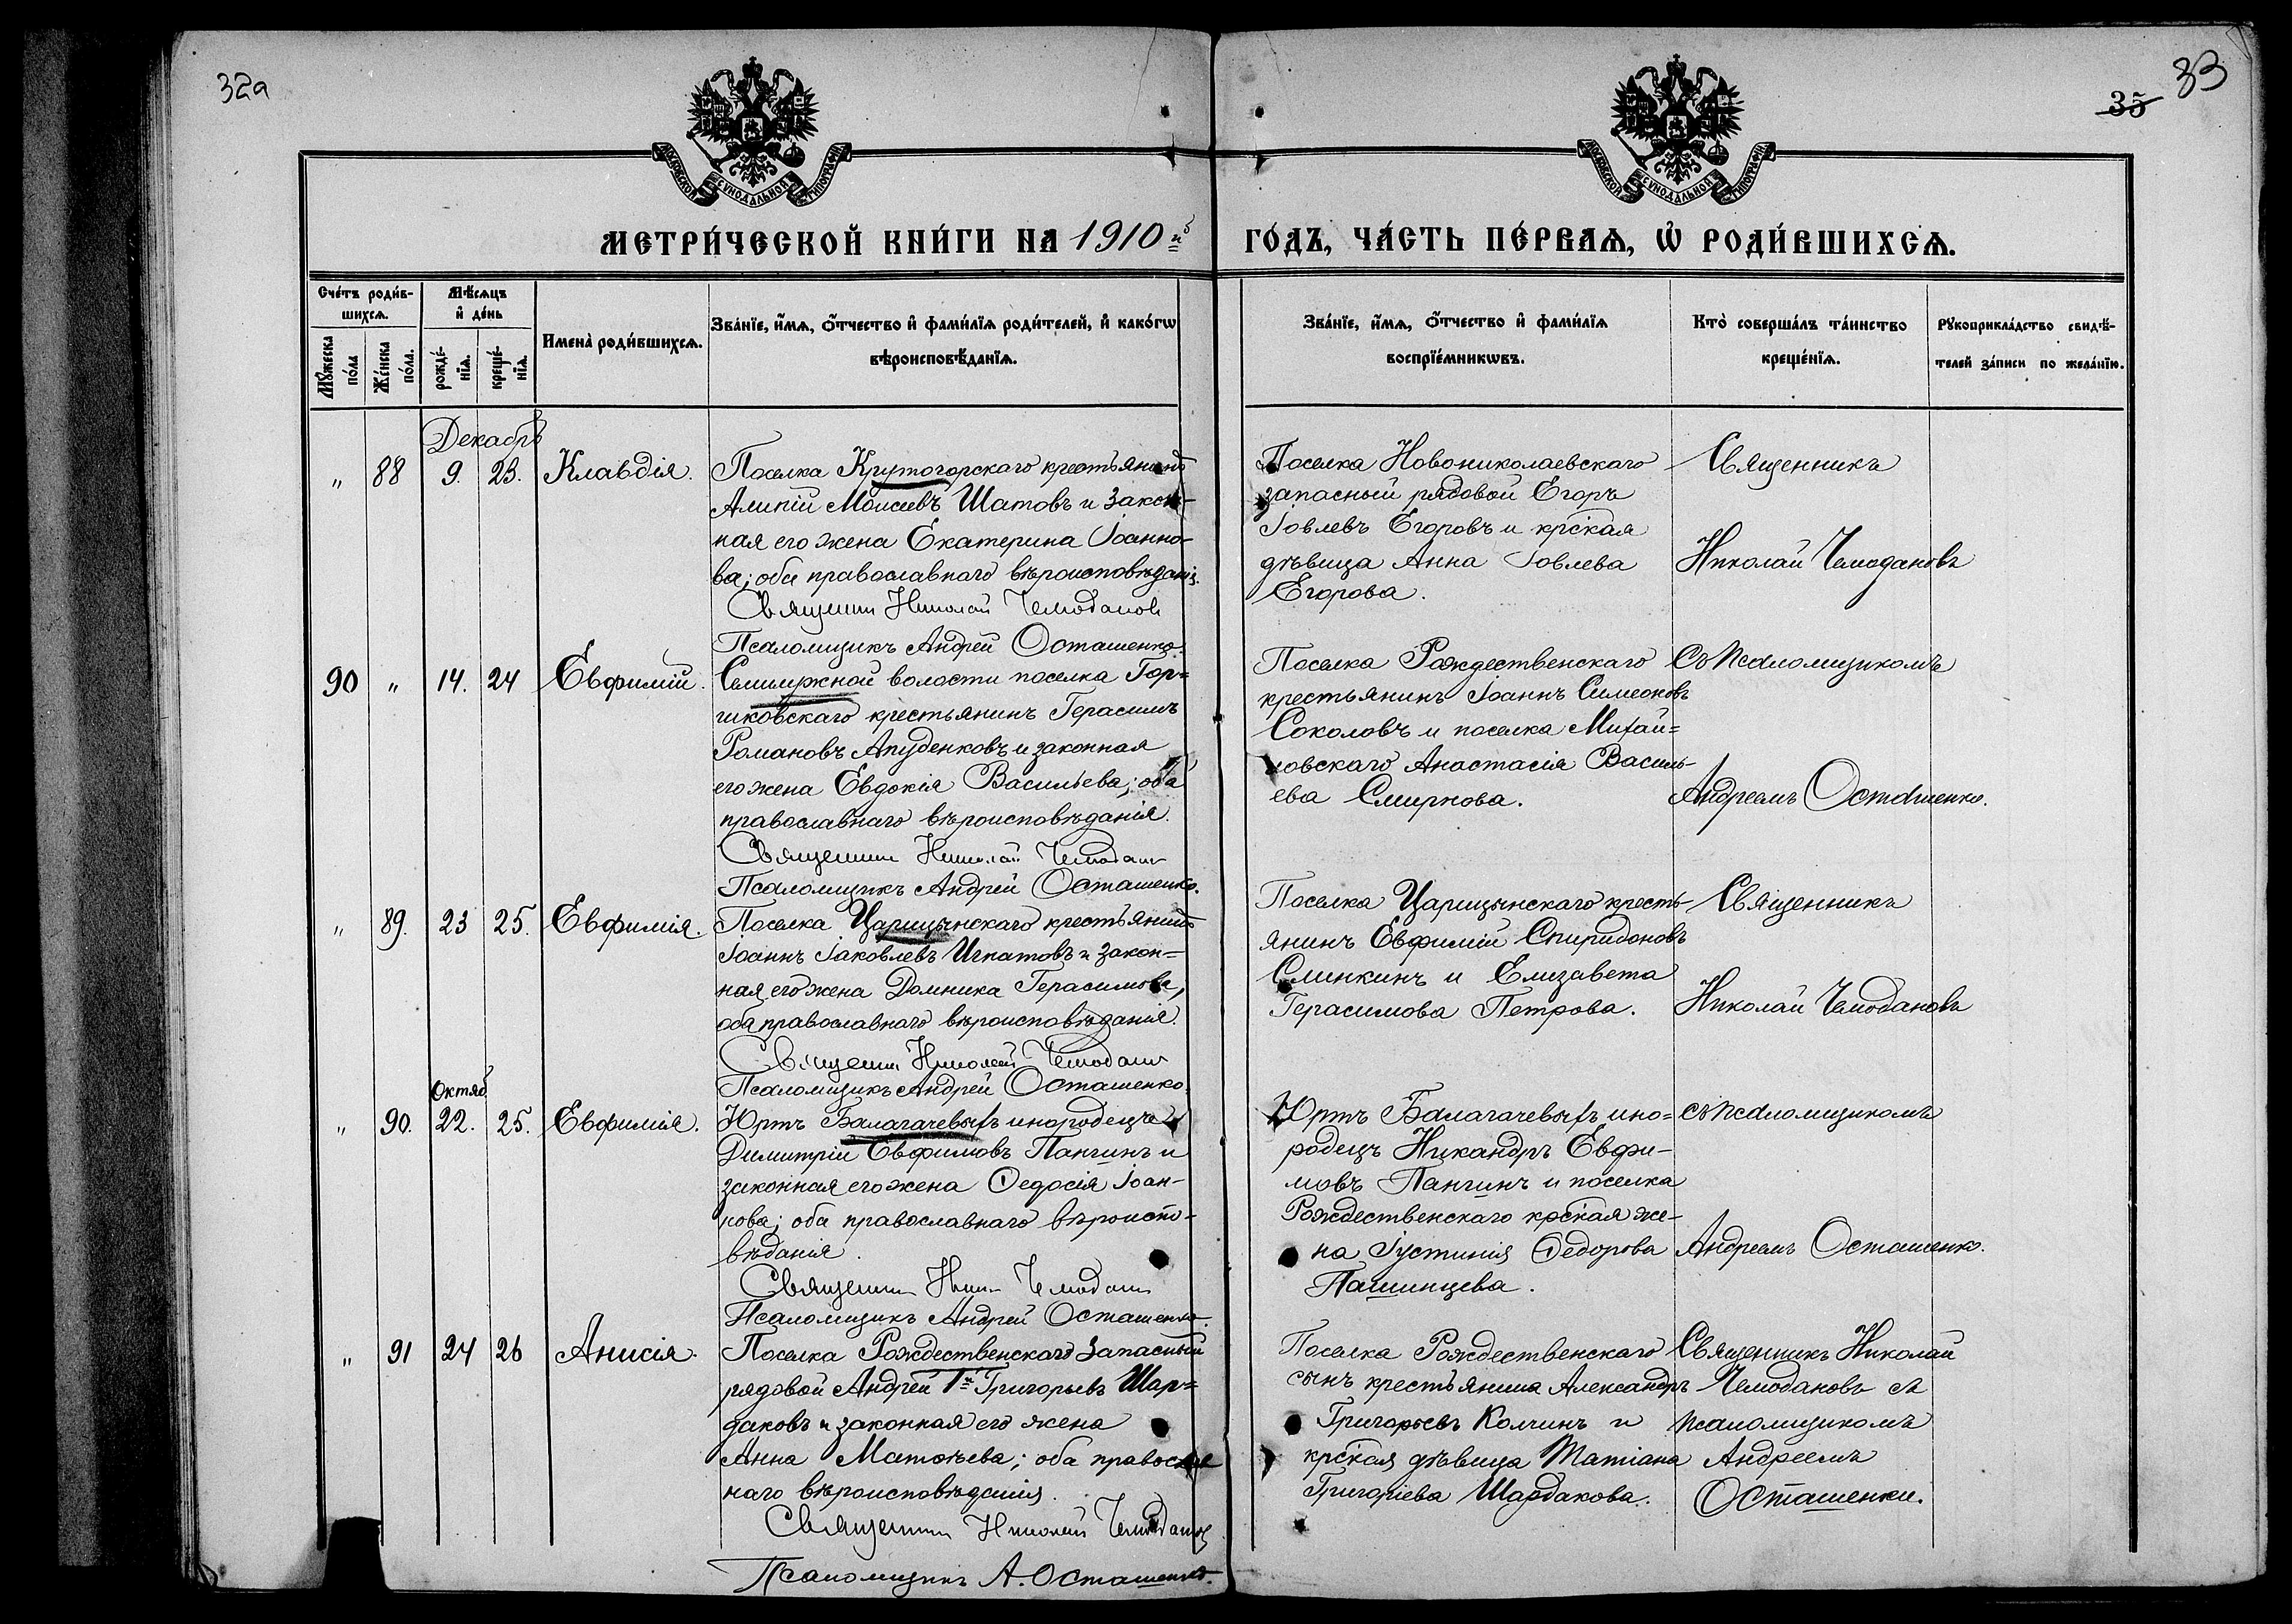 32а
33
35
МОСКОВСКОЙ СѴНОДАЛЬНОЙ ТИПОГРАФІИ
МОСКОВСКОЙ СѴНОДАЛЬНОЙ ТИПОГРАФІИ
МЕТРИ́ЧЕСКОЙ КНИ́ГИ НА 1910й ГО́ДЪ, ЧА́СТЬ ПЕ́РВАѦ, Ѡ РОДИ́ВШИХСѦ.
Сче́тъ роди́в-
шихсѧ.
Мꙋ́жеска
по́ла
Же́нска
по́ла.
Мѣ́сѧцъ
и҆ де́нь
рожде́-
нїѧ.
креще́-
нїѧ.
Имена̀ роди́вшихсѧ.
Зва́нїе, и҆́мѧ, ѻ҆́тчество и҆ фами́лїѧ роди́телей, и҆ како́гѡ
вѣроисповѣ́данїѧ.
Зва́нїе, и҆́мѧ, ѻ҆́тчество и҆ фами́лїѧ
воспрїе́мникѡвъ.
Кто̀ соверша́лъ та́инство
креще́нїѧ.
Рꙋкоприкла́дство свидѣ́-
телей за́писи по жела́нїю.
Декабрь
„ 88 9. 23. Клавдія.
Поселка Крутогорскаго крестьянинъ
Алипій Моисеевъ Шатовъ и закон-
ная его жена Екатерина Іоанно-
ва; оба православнаго вѣроисповѣданія.
Священникъ Николай Чемодановъ
Псаломщикъ Андрей Осташенко.
Поселка Новониколаевскаго
запасный рядовой Егоръ
Іовлевъ Егоровъ и крс̃кая
дѣвица Анна Іовлева
Егорова.
Священникъ
Николай Чемодановъ
90 „ 14. 24 Евфимій.
Семилужной волости поселка Гор-
шковскаго крестьянинъ Герасимъ
Романовъ Апуденковъ и законная
его жена Евдокія Васильева; оба
православнаго вѣроисповѣданія.
Священникъ Николай Чемодановъ
Псаломщикъ Андрей Осташенко.
Поселка Рождественскаго
крестьянинъ Іоаннъ Симеоновъ
Соколовъ и поселка Михай-
ловскаго Анастасія Василь-
ева Смирнова.
съ псаломщикомъ
Андреемъ Осташенко.
„ 89. 23 25. Евфимія.
Поселка Царицынскаго крестьянинъ
Іоаннъ Іаковлевъ Игнатовъ и закон-
ная его жена Домника Герасимова,
оба православнаго вѣроисповѣданія.
Священникъ Николай Чемодановъ
Псаломщикъ Андрей Осташенко.
Поселка Царицынскаго кресть-
янинъ Евфимій Спиридоновъ
Слинкинъ и Елизавета
Герасимова Петрова.
Священникъ
Николай Чемодановъ
Октяб.
„ 90. 22. 25. Евфимія.
Юртъ Балагачевыхъ инородецъ
Димитрій Евфимовъ Пангинъ и
законная его жена Ѳедосія Іоан-
нова; оба православнаго вѣроиспо-
вѣданія.
Священникъ Ник. Чемодановъ
Псаломщикъ Андрей Осташенко.
Юртъ Балагачевыхъ ино-
родецъ Никандръ Евфи-
мовъ Пангинъ и поселка
Рождественскаго крс̃кая же-
на Іустинія Ѳедорова
Пашинцева.
съ псаломщикомъ
Андреемъ Осташенко.
„ 91 24 26 Анисія.
Поселка Рождественскаго запасный
рядовой Андрей 1й Григорьевъ Шар-
даковъ и законная его жена
Анна Матѳѣева; оба православ
наго вѣроисповѣданія.
Священникъ Николай Чемодановъ
Псаломщикъ А. Осташенко.
Поселка Рождественскаго
сынъ крестьянина Александръ
Григорьевъ Колчинъ и
крс̃кая дѣвица Татіана
Григоріева Шардакова.
Священникъ Николай
Чемодановъ съ
псаломщикомъ
Андреемъ
Осташенки.